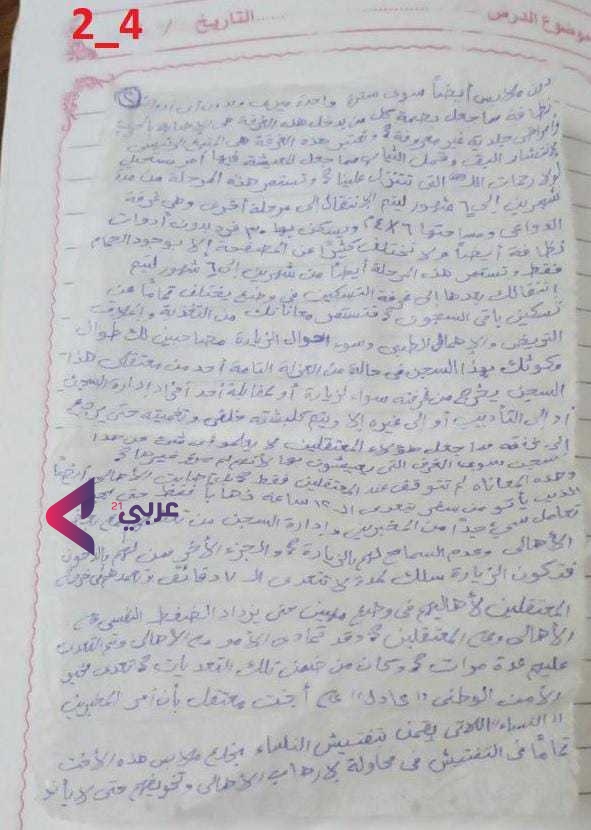 2_4
موضوع الدرس
التاريخ /
٢
ملابس أيضاً سوى سترة واحدة
نظافة مما جعل كل من يدخل هذه الغرفة
وأمراض جلدية غير معروفة و تعتبر هذه الغرفة هي
لانتشار البق وقمل الثياب مما جعل المعيشة فيها أمر مستحيل
لولا رحمات الله التي تتنزل علينا وتستمر هذه المرحلة من مدة
شهرين إلى ٦ شهور ليتم الانتقال إلى مرحلة أخرى وهي غرفة
الدواعي ومساحتها ٦×٤ ويسكن بها ٣٠ فرد بدون أدوات
نظافة أيضاً ولا تختلف كثيراً عن المصفحة إلا بوجود الحمام
فقط وتستمر هذه المرحلة أيضاً من شهرين إلى ٦ شهور ليتم
انتقالك بعدها إلى غرفة التسكين في وضع يختلف تماماً عن
تسكين باقي السجون فتستمر معاناتك من التغذية وإغلاق
التريض والإهمال الطبي وسوء أحوال الزيارة مصاحبين لك طوال
وكونك بهذا السجن في حالة من العزلة التامة أحد من معتقلي هذا
السجن يخرج من غرفته سواء لزيارة أو لمقابلة أحد أفراد إدارة السجن
أو إلى التأديب أو إلى غيره إلا ويتم كلبشته خلفي وتغميته حتى يرجع
إلى غرفته مما جعل هؤلاء المعتقلين لا
السجن سوى الغرف التي يعيشون بها
وهذه المعاناة لم تتوقف عند المعتقلين فقط الأهالي أيضاً
الذين يأتو من سفر يتعدى الـ ١٢ ساعة ذهاباً فقط
تعامل سيئ جداً من المخبرين وإدارة السجن من
الأهالي وعدم السماح لهم بالزيارة والجزء الآخر من لهم بالدخول
فتكون الزيارة سلك لمدة لا تتعدى الـ ٧ دقائق
المعتقلين لأهاليهم في وضع مهين حتى يزداد الضغط النفسي على
الأهالي وعلى المعتقلين وقد تمادى الأمر مع الأهالي وتم التعدي
عليهم عدة مرات وكان من ضمن تلك التعديات تعدي مخبر
الأمن الوطني "عادل" على أخت معتقل بأن أمر المخبرين
"النساء" اللاتي يقمن بتفتيش النساء بخلع ملابس هذه الأخت
تماماً في التفتيش في محاولة لإرهاب الأهالي وتخويفهم حتى لا
عربي21